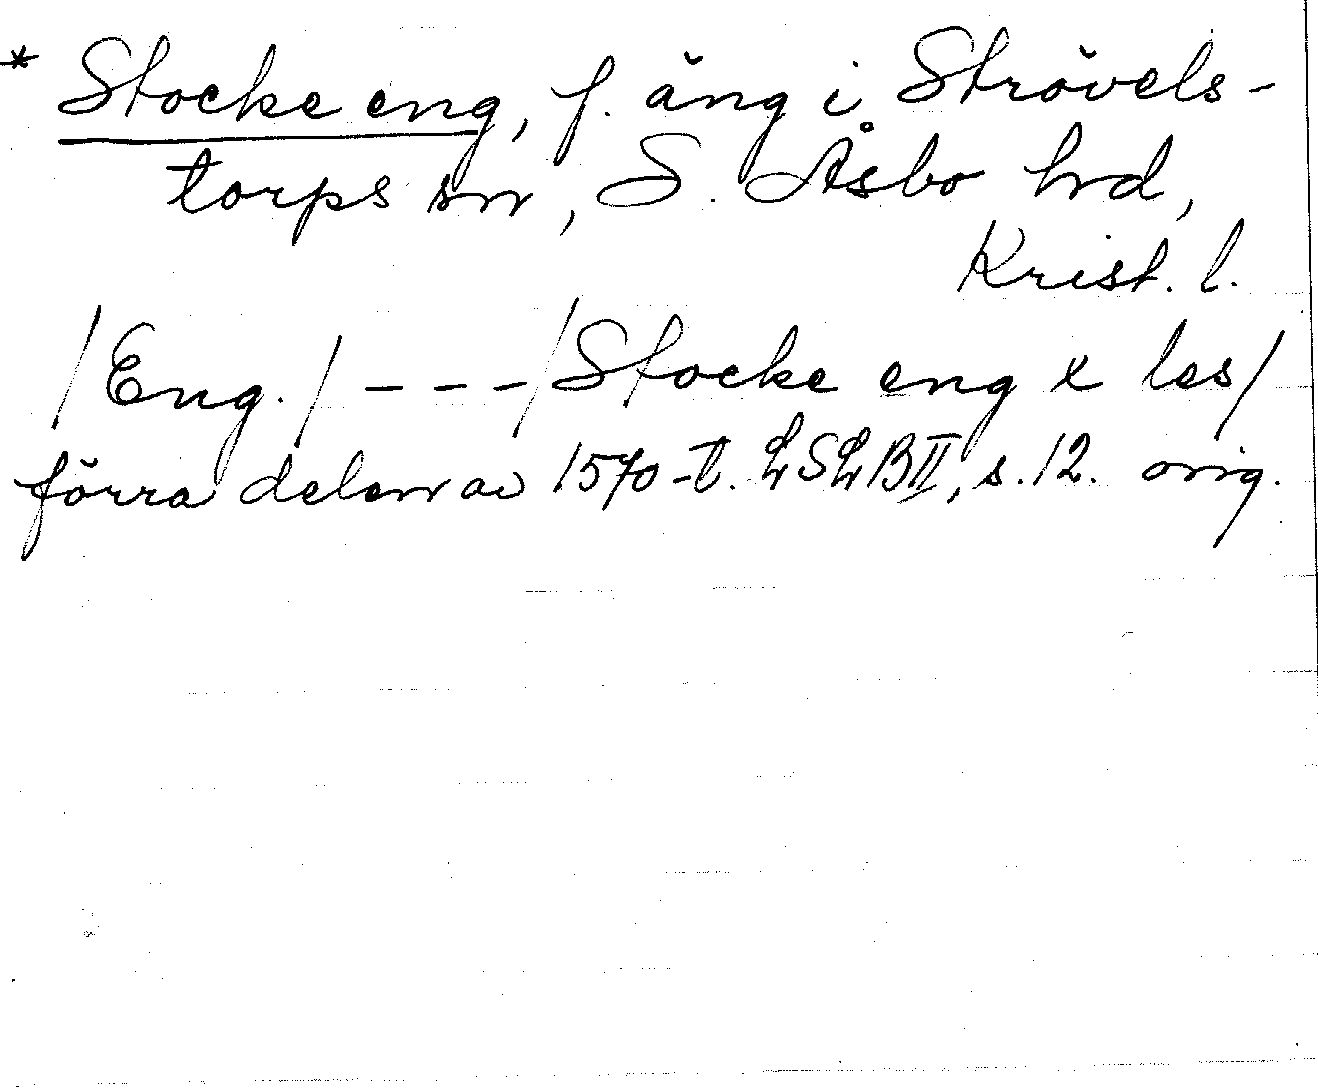 * Stocke eng, f. äng i Strövels-
torps sn, S. Åsbo hrd,
Krist. l.
/Eng./ - - - /Stocke eng x les/
förra delen av 1570-t. LSLB II, s. 12. orig.